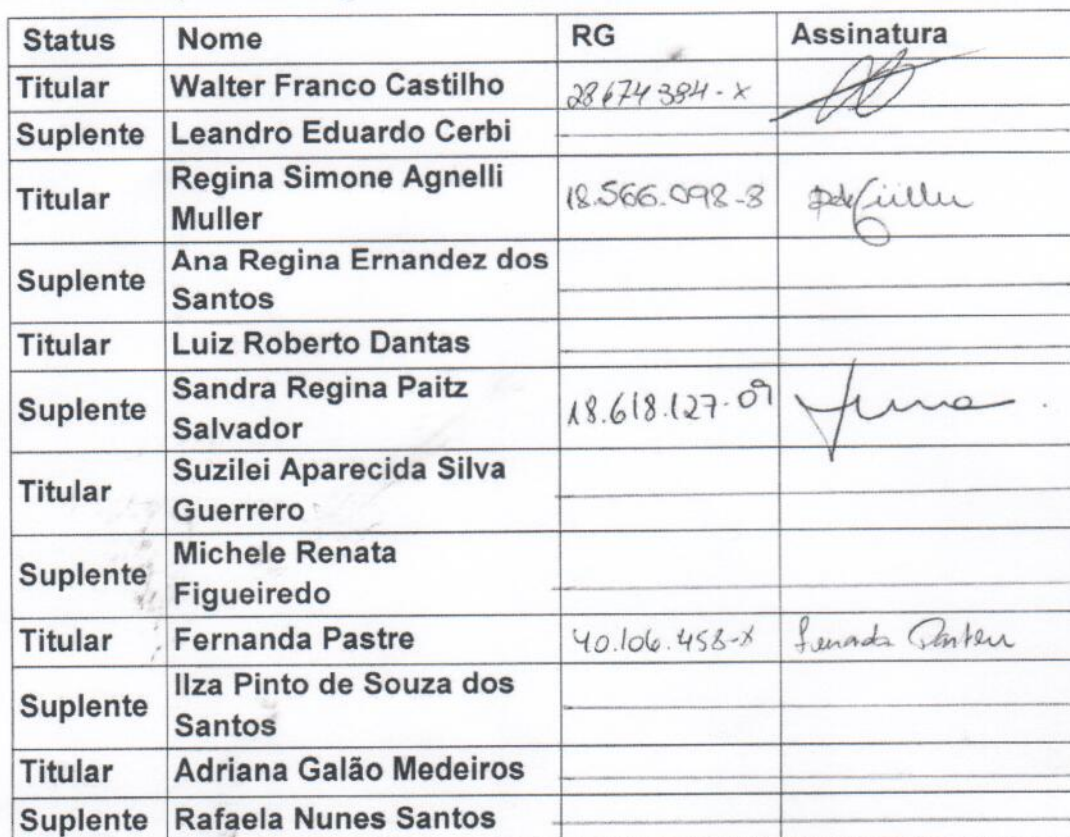 Status Nome RG Assinatura
Titular Walter Franco Castilho 28674384-x
Suplente Leandro Eduardo Cerbi
Titular Regina Simone Agnelli
Muller 18.566.098-8
Suplente Ana Regina Ernandez dos
Santos
Titular Luiz Roberto Dantas
Suplente Sandra Regina Paitz
Salvador 18.618.127-09
Titular Suzilei Aparecida Silva
Guerrero
Suplente Michele Renata
Figueiredo
Titular Fernanda Pastre 40.106.458-x
Suplente Ilza Pinto de Souza dos
Santos
Titular Adriana Galão Medeiros
Suplente Rafaela Nunes Santos